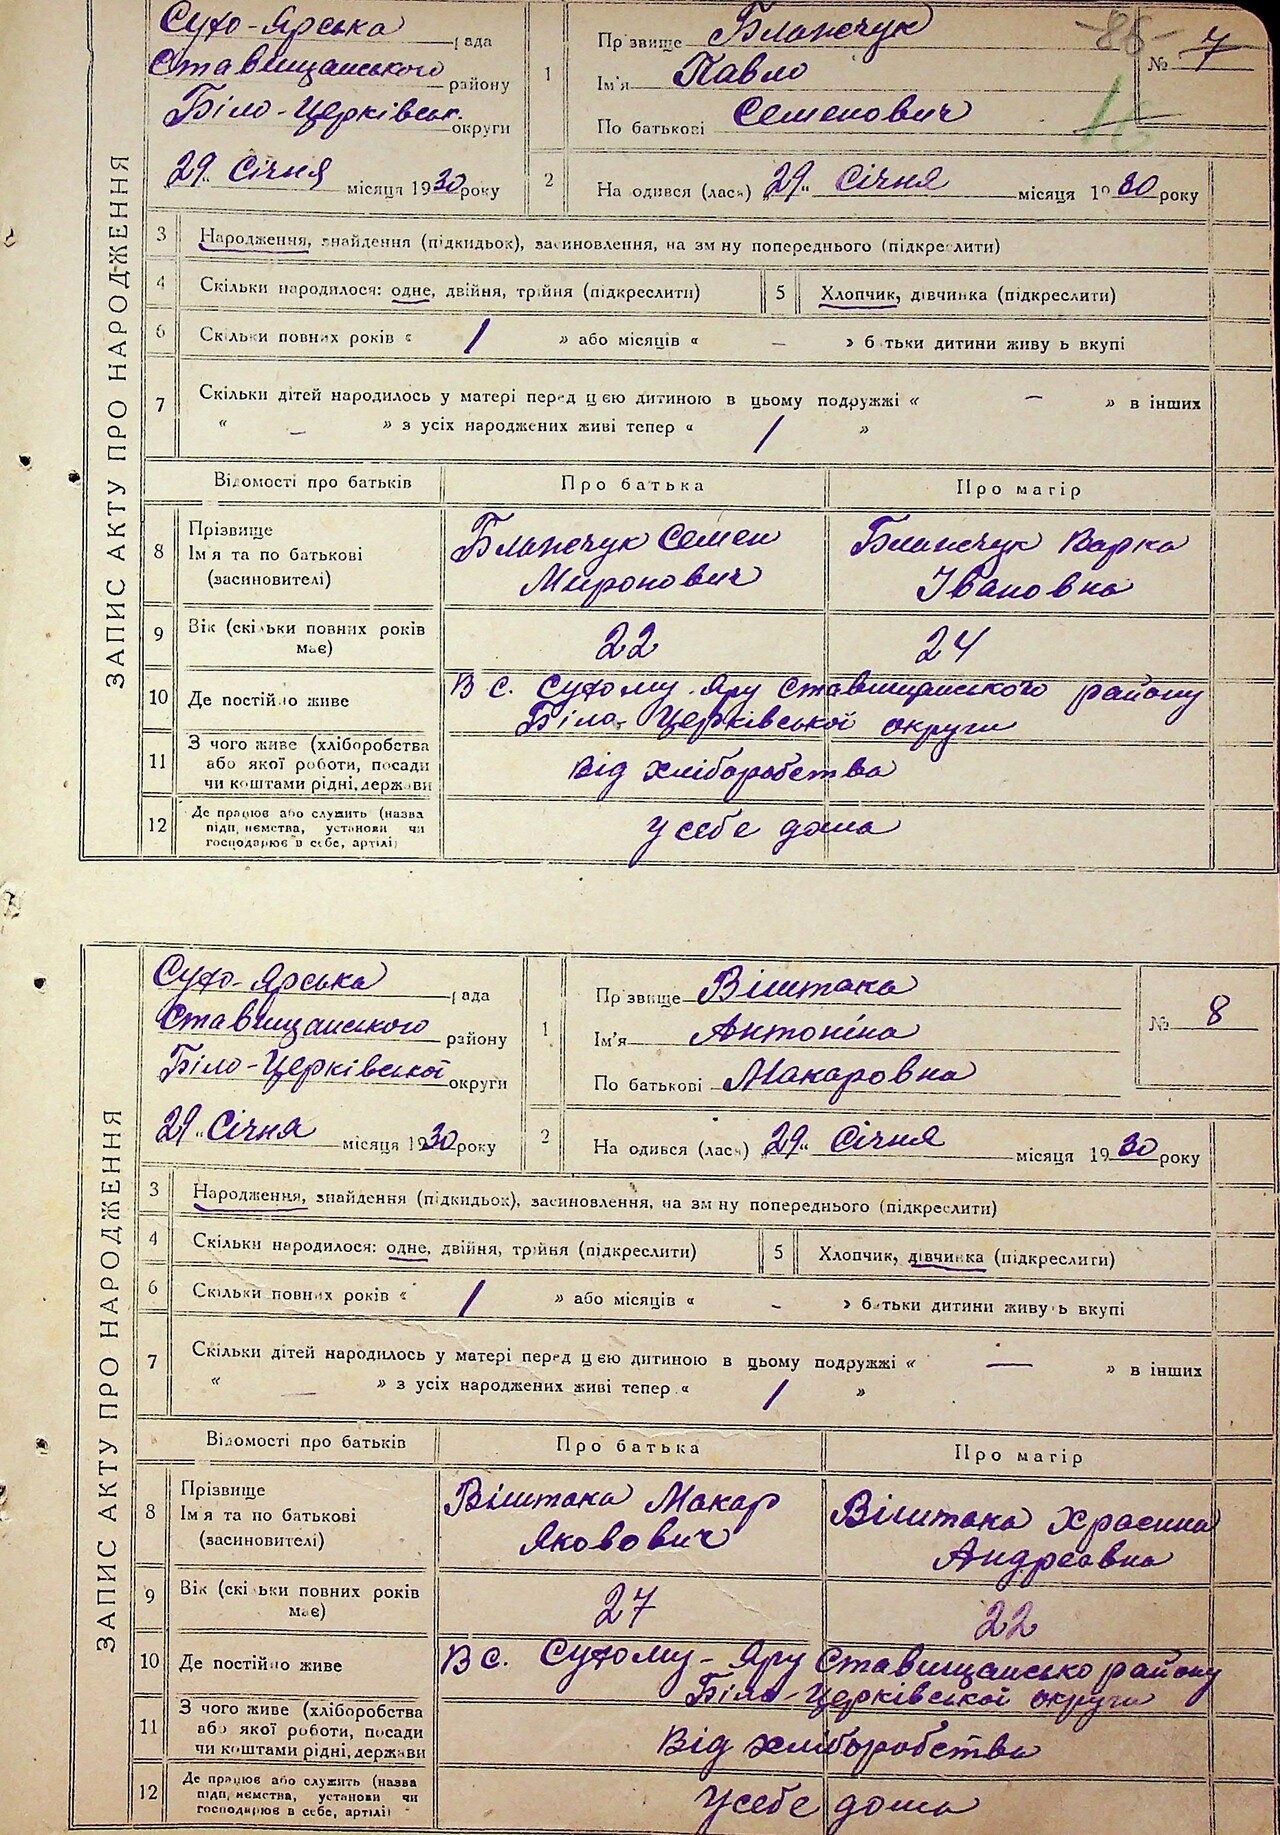 Сухо-Ярська рада
Ставищанського району
Біло-Церківськ. округи
29" Січня місяця 1930 року
1
Прізвище Бланчук
Ім'я Павло
По батькові Семенович
-86-
№ 7
16
2
На одився (лась) 29" Січня місяця 1930 року
ЗАПИС АКТУ ПРО НАРОДЖЕННЯ
3 Народження, знайдення (підкидьок), засиновлення, на зм ну попереднього (підкреслити)
4 Скільки народилося: одне, двійня, трійня (підкреслити) 5 Хлопчик, дівчинка (підкреслити)
6 Скільки повних років « 1 » або місяців « — » батьки дитини живуть вкупі
7 Скільки дітей народилось у матері перед цією дитиною в цьому подружжі « — » в інших
« — » з усіх народжених живі тепер « 1 »
Відомості про батьків Про батька Про матір
8 Прізвище
Ім'я та по батькові
(засиновителі)
Бланчук Семен
Миронович
Бланчук Варка
Івановна
9 Вік (скільки повних років
має)
22 24
10 Де постійно живе
В с. Сухому-Яру Ставищанського району
Біло-Церківської округи
11 З чого живе (хліборобства
або якої роботи, посади
чи коштами рідні, держави
Від хліборобства
12 Де працює або служить (назва
підприємства, установи чи
господарює в себе, артілі)
У себе дома
Сухо-Ярська рада
Ставищанського району
Біло-Церківської округи
29" Січня місяця 1930 року
1
Прізвище Віштака
Ім'я Антоніна
По батькові Макаровна
№ 8
2
На одився (лась) 29" Січня місяця 1930 року
ЗАПИС АКТУ ПРО НАРОДЖЕННЯ
3 Народження, знайдення (підкидьок), засиновлення, на зм ну попереднього (підкреслити)
4 Скільки народилося: одне, двійня, трійня (підкреслити) 5 Хлопчик, дівчинка (підкреслити)
6 Скільки повних років « 1 » або місяців « — » батьки дитини живуть вкупі
7 Скільки дітей народилось у матері перед цією дитиною в цьому подружжі « — » в інших
« — » з усіх народжених живі тепер « 1 »
Відомості про батьків Про батька Про матір
8 Прізвище
Ім'я та по батькові
(засиновителі)
Віштака Макар
Якович
Віштака
Андреавна
9 Вік (скільки повних років
має)
27 22
10 Де постійно живе
В с. Сухому-Яру Ставищансько району
Біло-Церківської округи
11 З чого живе (хліборобства
або якої роботи, посади
чи коштами рідні, держави
Від хліборобства
12 Де працює або служить (назва
підприємства, установи чи
господарює в себе, артілі)
У себе дома